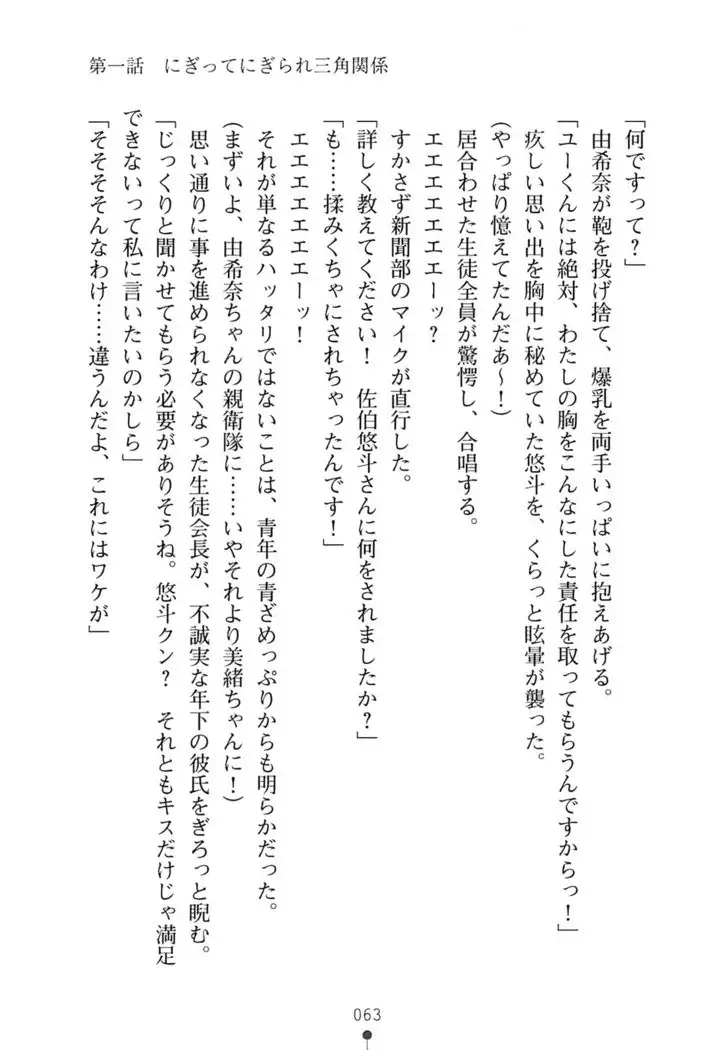 第一話　にぎってにぎられ三角関係
「何ですって？」
　由希奈が鞄を投げ捨て、爆乳を両手いっぱいに抱えあげる。
「ユーくんには絶対、わたしの胸をこんなにした責任を取ってもらうんですからっ！」
　疚しい思い出を胸中に秘めていた悠斗を、くらっと眩暈が襲った。
（やっぱり憶えてたんだぁ～！）
　居合わせた生徒全員が驚愕し、合唱する。
　エエエエエエーッ？
　すかさず新聞部のマイクが直行した。
「詳しく教えてください！　佐伯悠斗さんに何をされましたか？」
「も……揉みくちゃにされちゃったんです！」
　エエエエエエーッ！
　それが単なるハッタリではないことは、青年の青ざめっぷりからも明らかだった。
（まずいよ、由希奈ちゃんの親衛隊に……いやそれより美緒ちゃんに！）
　思い通りに事を進められなくなった生徒会長が、不誠実な年下の彼氏をぎろっと睨む。
「じっくりと聞かせてもらう必要がありそうね。悠斗クン？　それともキスだけじゃ満足
できないって私に言いたいのかしら」
「そそそそんなわけ……違うんだよ、これにはワケが」
063